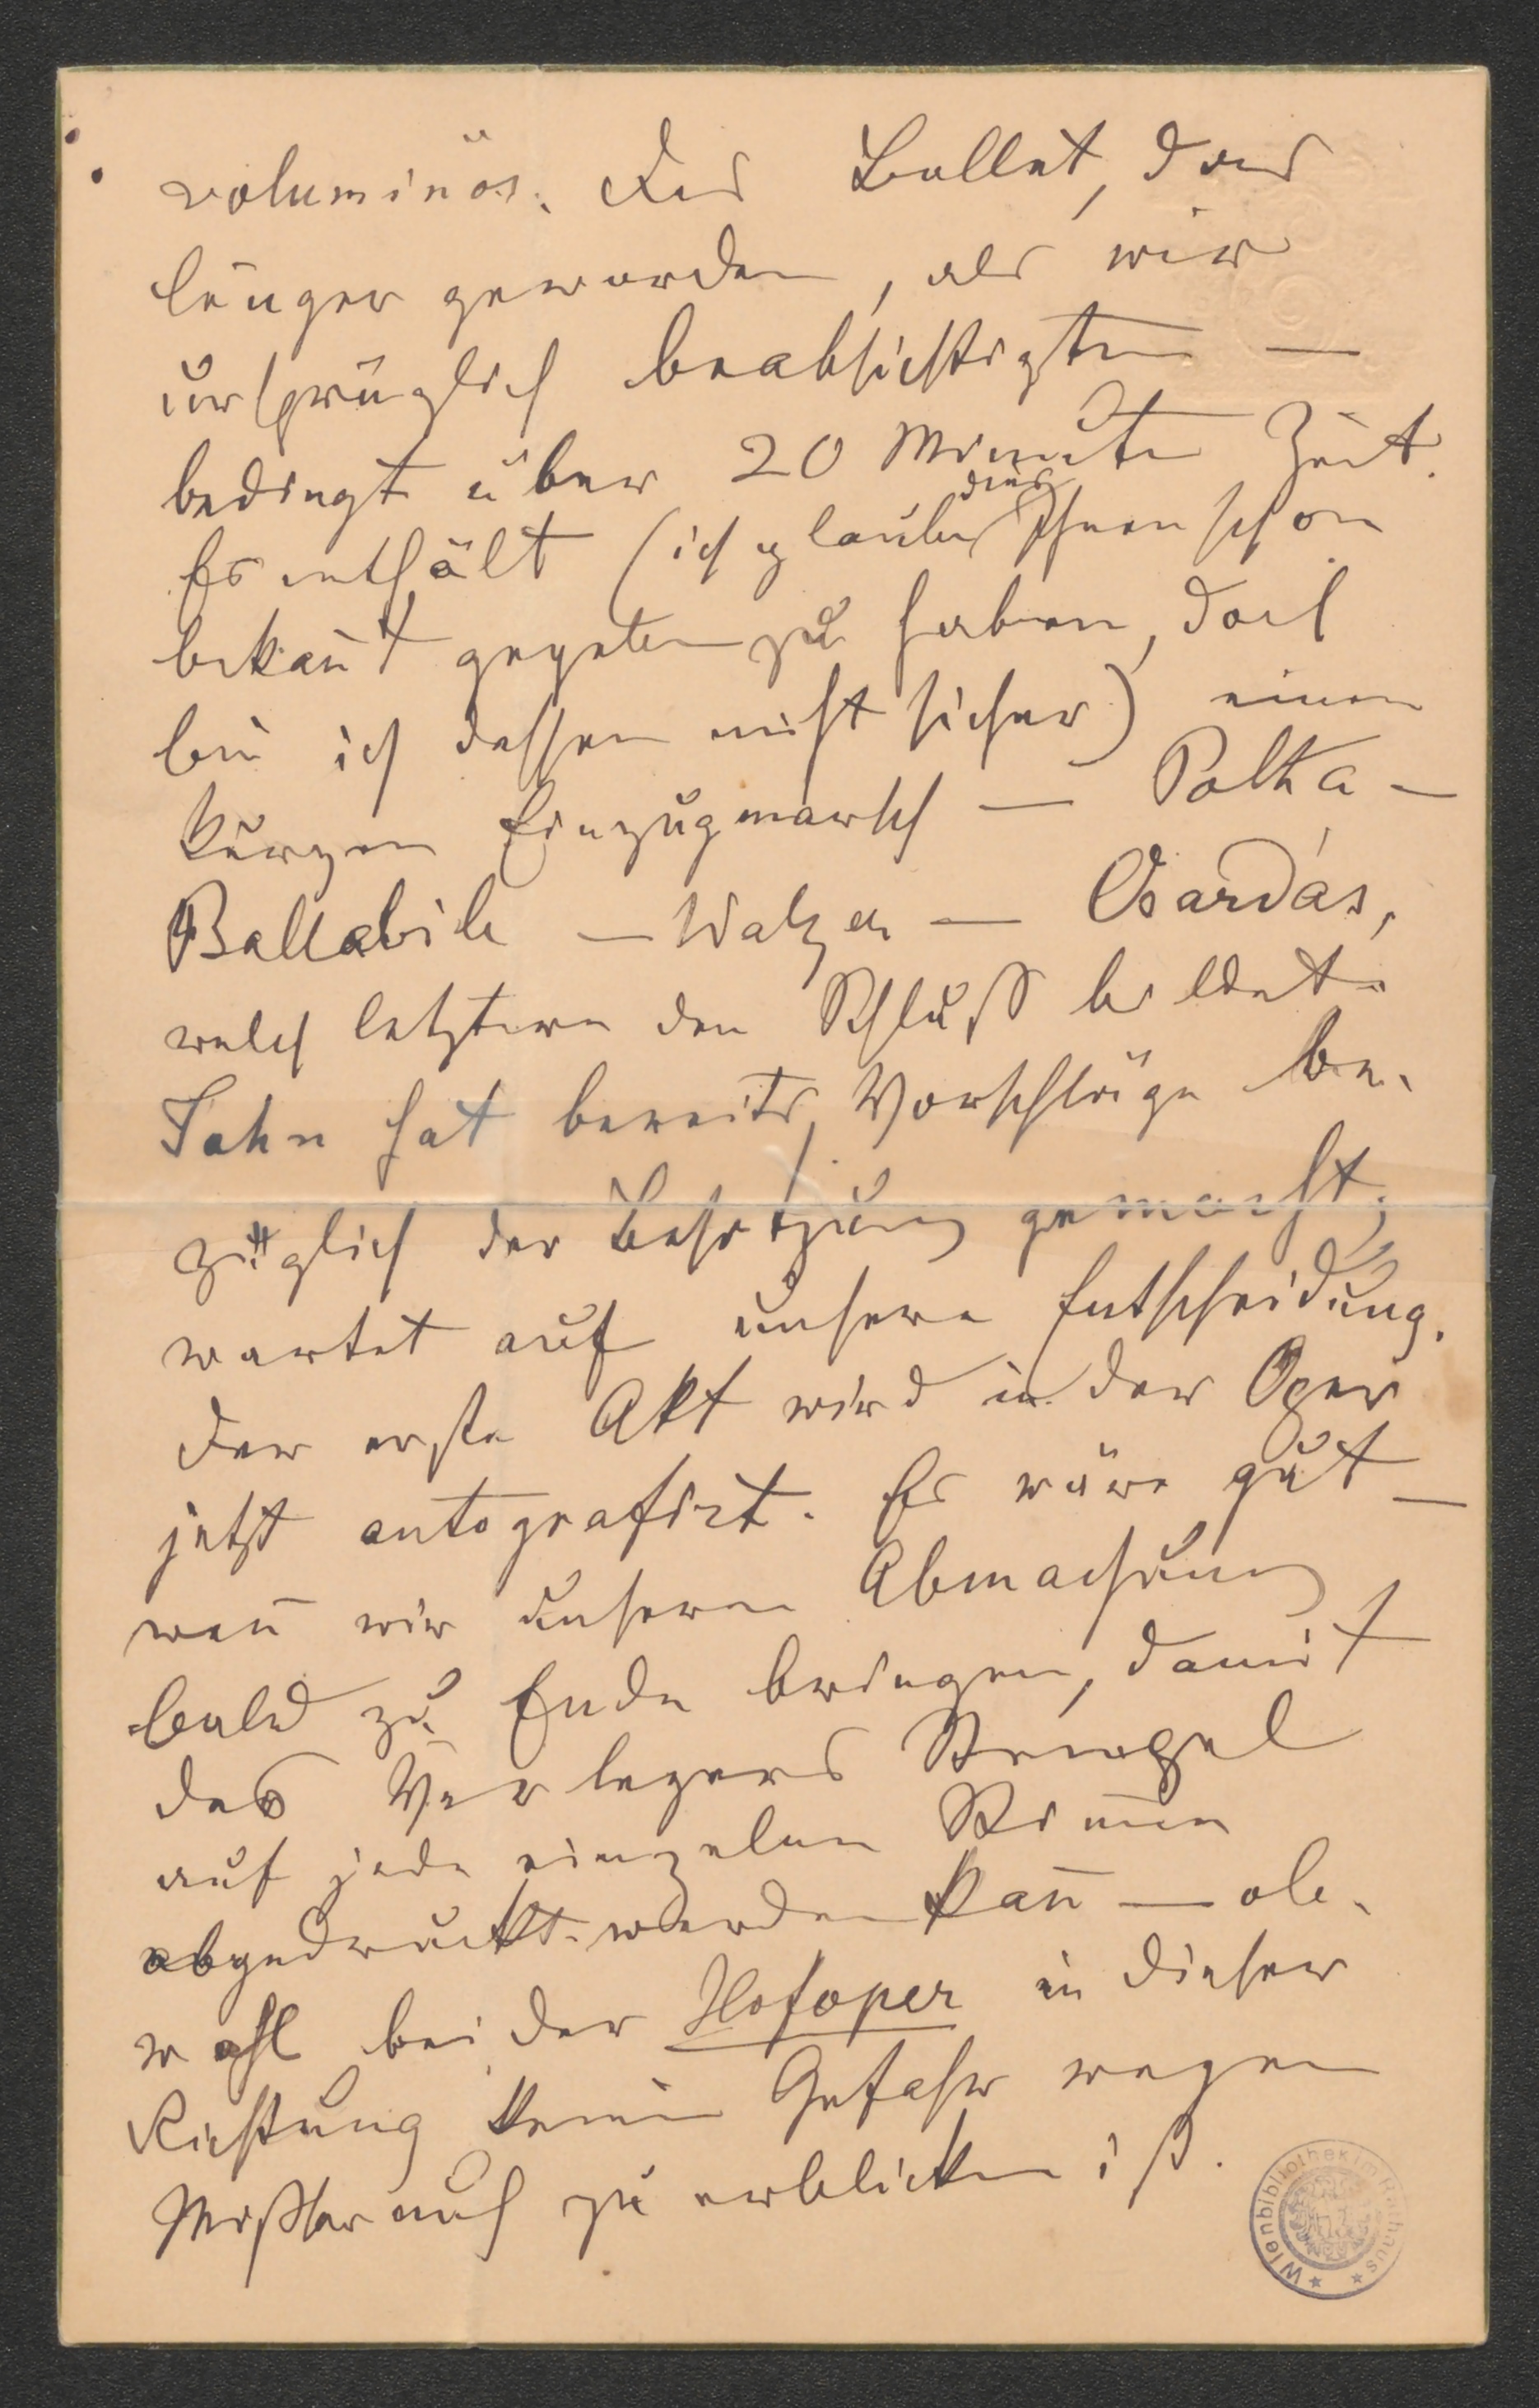 voluminös. Das Ballet, das
länger geworden, als wir
ursprünglich beabsichtigten —
bedingt über 20 Minuten Zeit.
Es enthält (ich glaube dies Ihnen schon
bekañt gegeben zu haben, doch
bin ich dessen nicht sicher) einen
kurzen Einzugmarsch — Polka —
Ballabile — Walzer — Csárdás,
welch letzterer den Schluß bildet.
Jahn hat bereits Vorschläge be-
züglich der Besetzung gemacht;
wartet auf unsere Entscheidung.
Der erste Akt wird in der Oper
jetzt autografirt. Es wäre gut —
weñ wir unsere Abmachung
bald zu Ende bringen, damit
des Verlegers Stempel
auf jede einzelne Stim̄e
abgedruckt werden kañ — ob-
wohl bei der Hofoper in dieser
Richtung keine Gefahr wegen
Mißbrauch zu erblicken ist.
Wienbibliothek im Rathaus